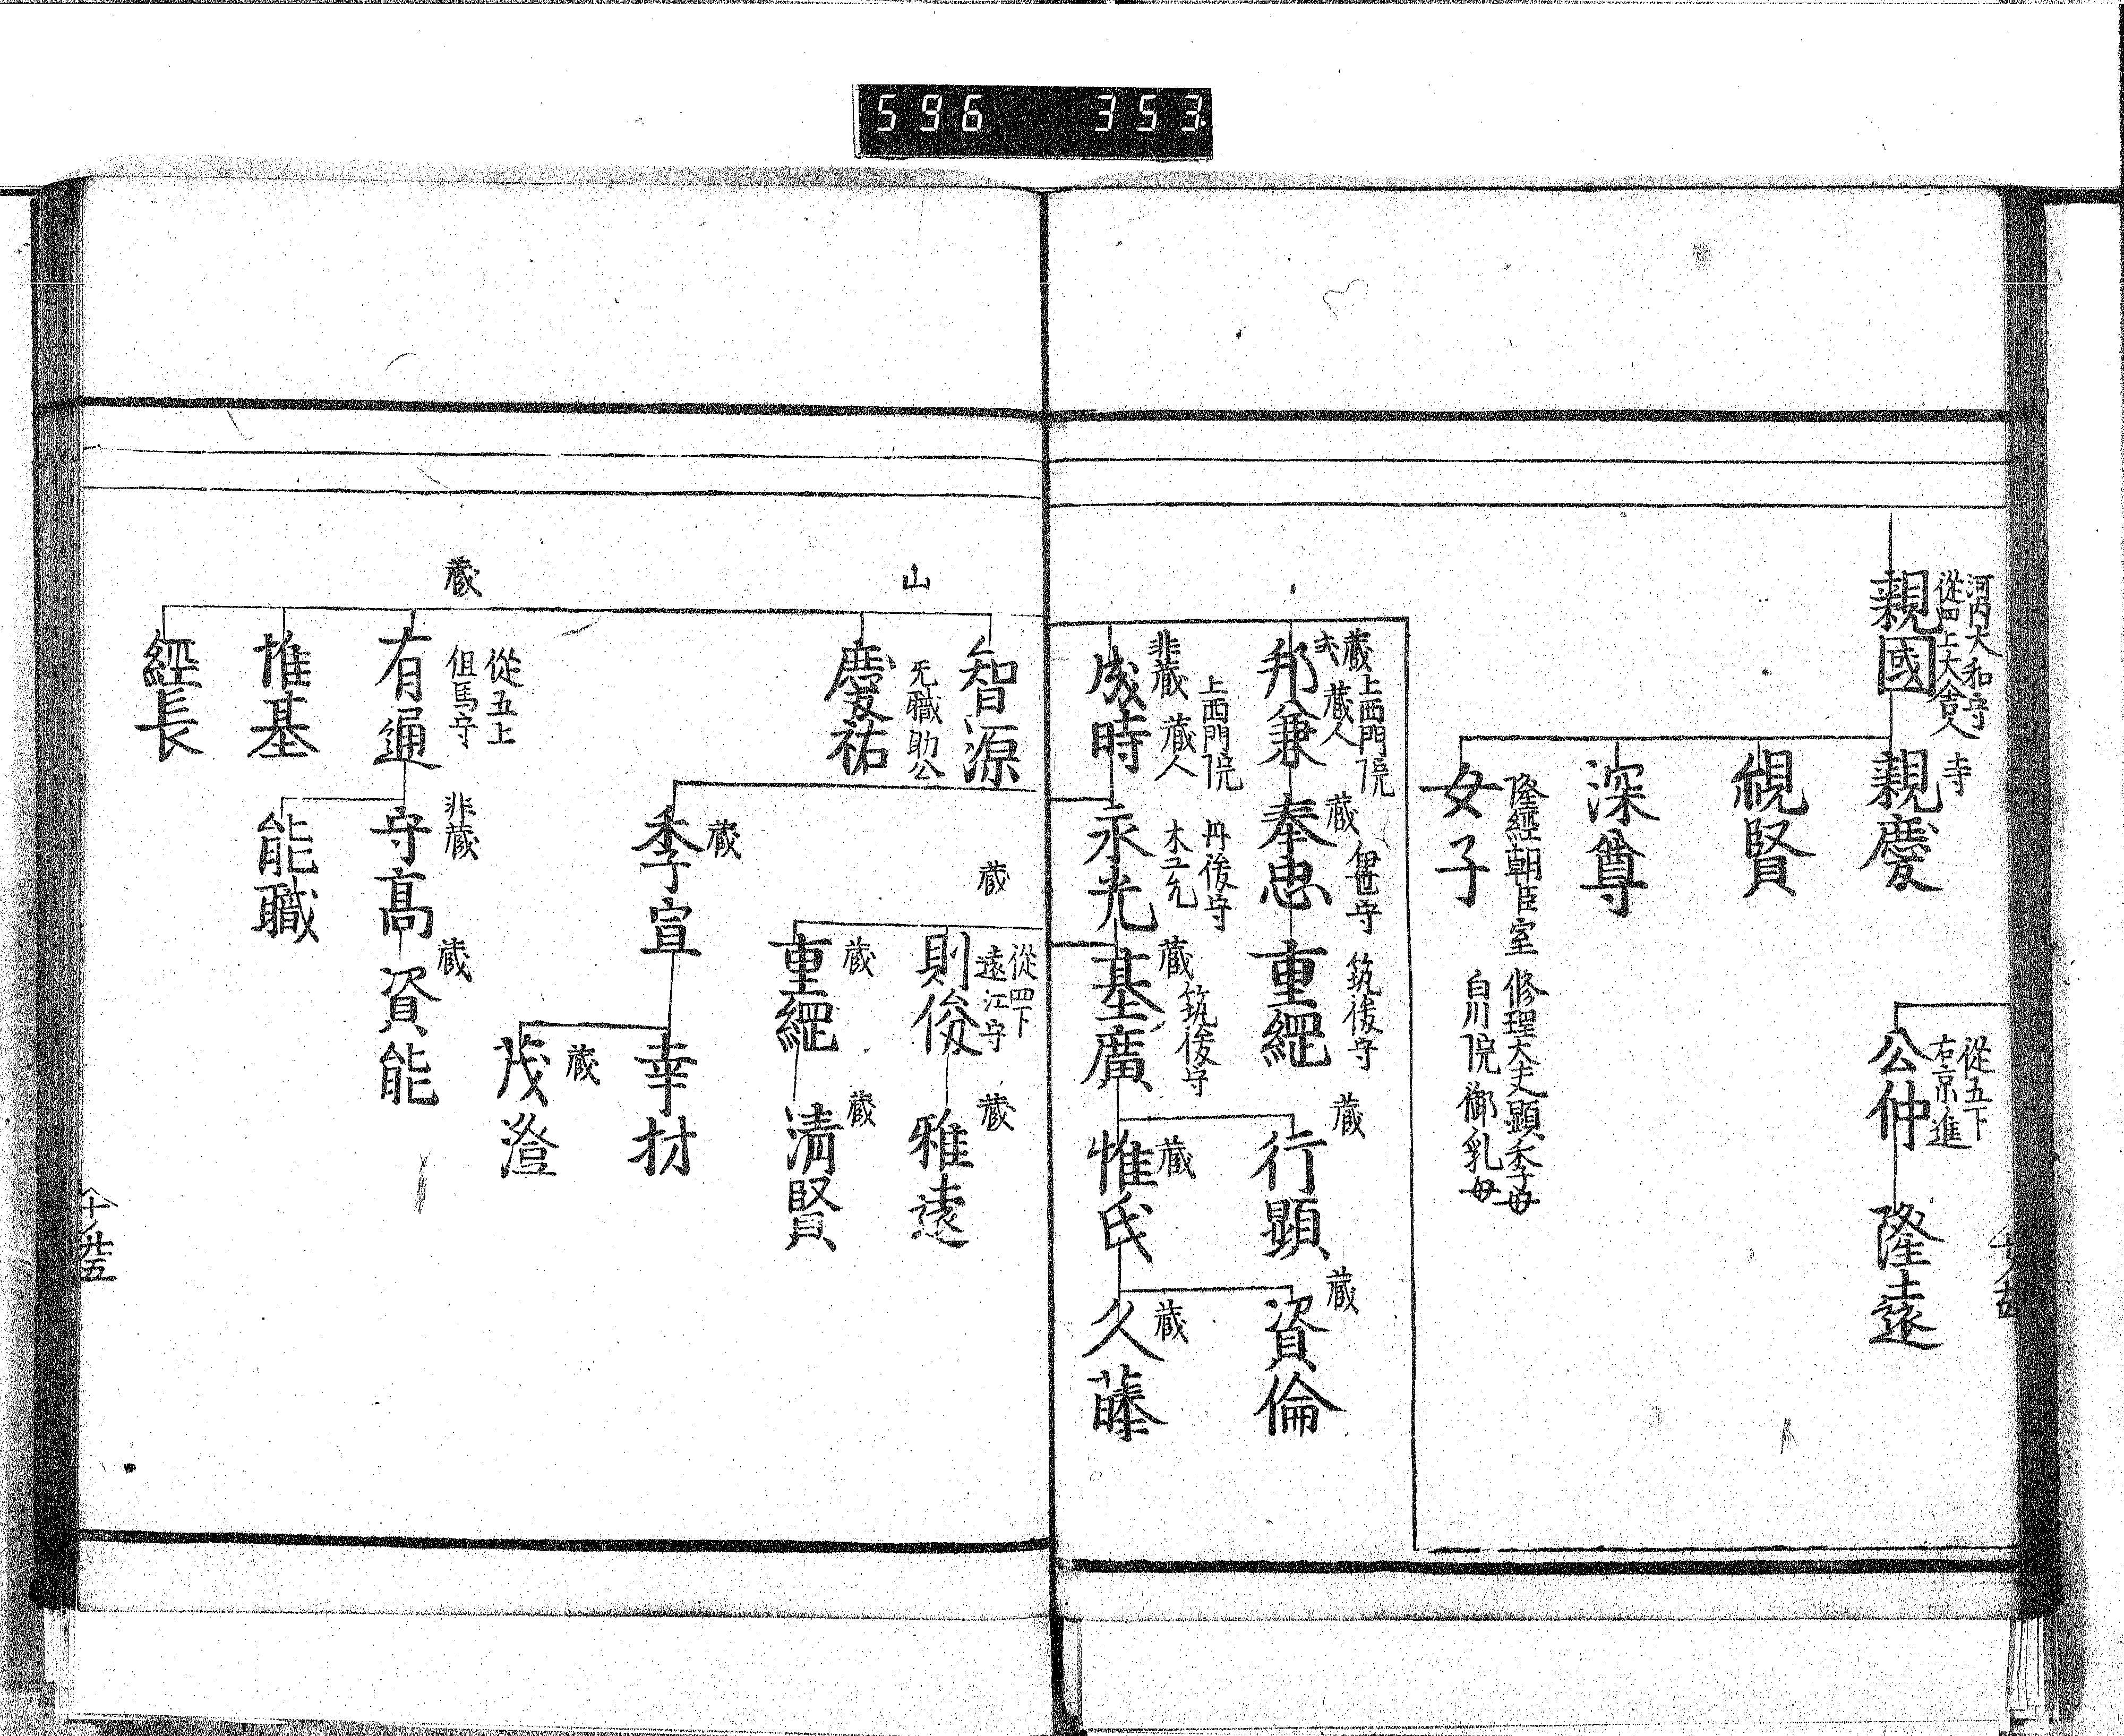 596 353
河内大和守
從四上大舎人
親國
寺
親慶
覞賢
深尊
隆經朝臣室 修理大夫顕季母
白川院御乳母
女子
從五下
右京進
公仲
隆遠
蔵 上西門院
蔵人
邦兼
蔵 伊世守
奉忠
筑後守
重經
蔵
行顕
蔵
資倫
上西門院
非蔵 蔵人
成時
丹後守
木工允
永光
蔵 筑後守
基廣
蔵
惟氏
蔵
久藤
山
智源
无職助公
慶祐
蔵
從四下
遠江守
則俊
蔵
雅遠
蔵
重經
蔵
清賢
蔵
季宣
幸材
蔵
茂澄
蔵
從五上
但馬守
有通
非蔵
守高
蔵
資能
能職
惟基
經長
十ノ廿五